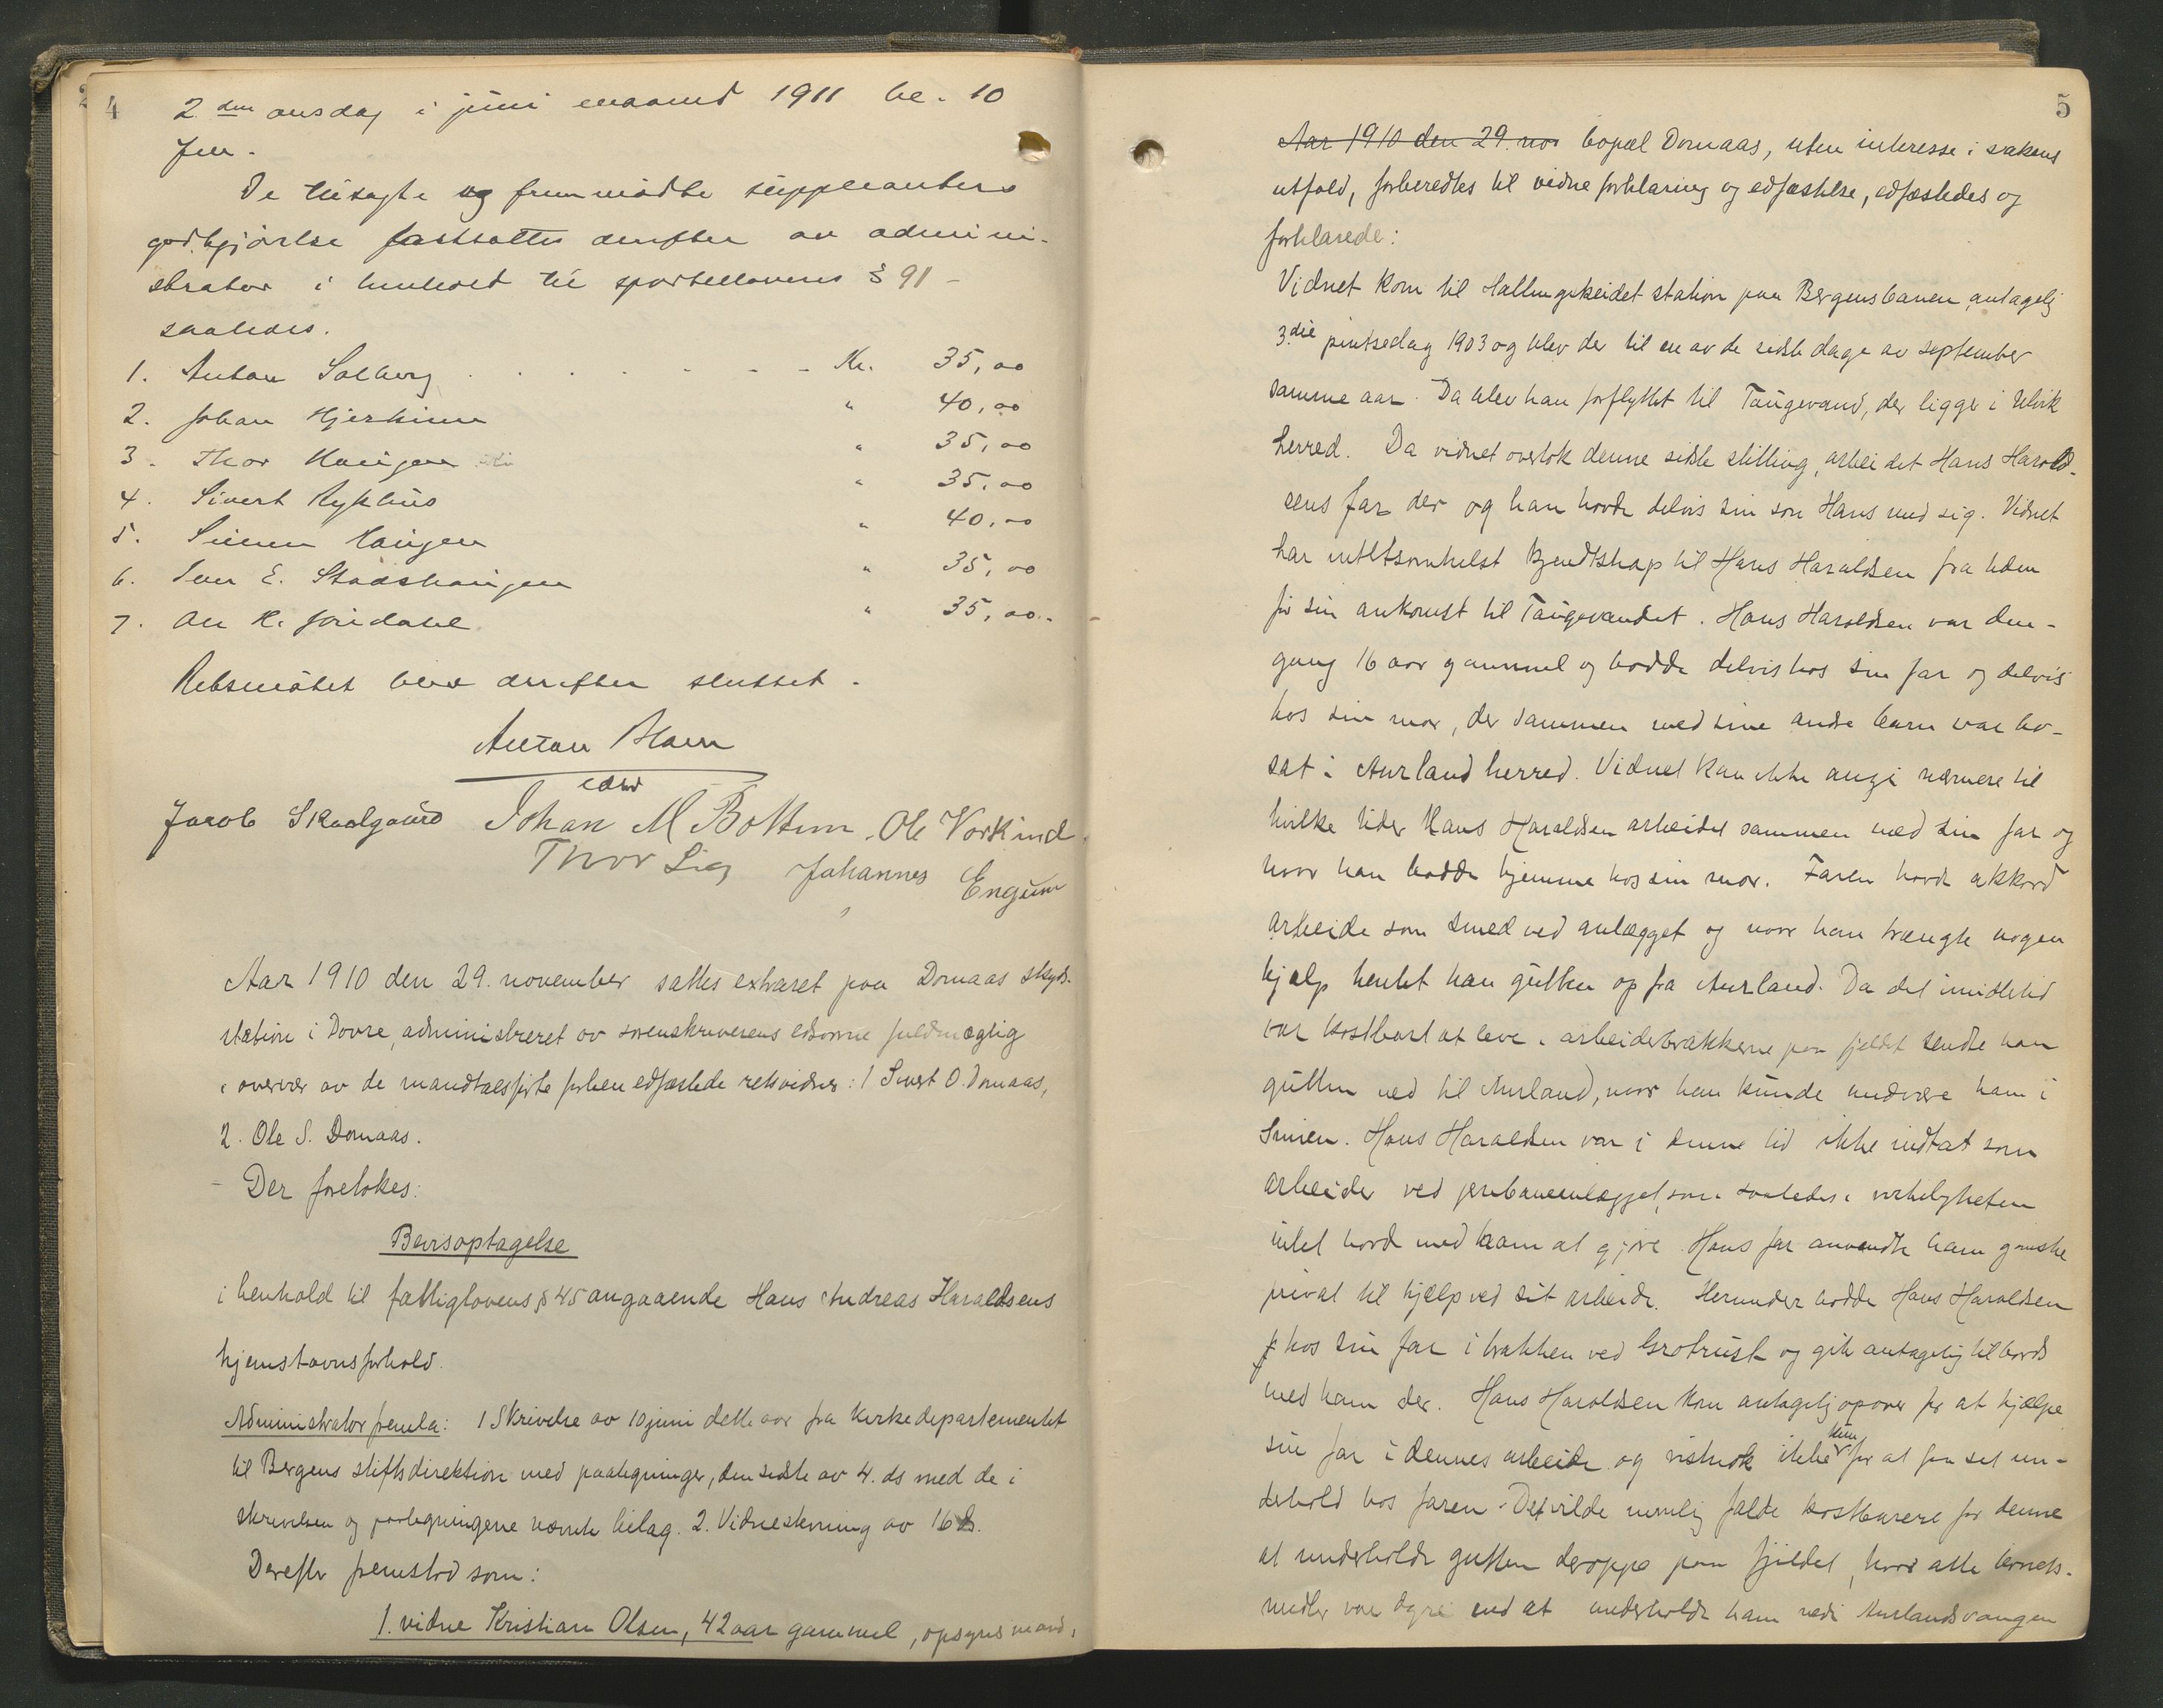 4
2den onsdag i juni maaned 1911 kl. 10
fm.
De tilsagte og fremmødte suppleanters
godtgjørelse fastsattes derefter av admini-
strator i henhold til sportellovens § 91 -
saaledes.
1. Anton Solberg . . . . . - - Kr. 35,00
2. Johan Hjerkinn " 40,00
3. Thor Haugen " 35,00
4. Sivert Ryphus " 35,00
5. Simen Haugen " 40,00
6. Iver E. Stadshaugen " 35,00
7. Ole K. Jøndahl " 35,00.
Retsmøtet blev derefter sluttet.
Anton Blom
edsv
Jacob Skaalgaard Johan M Bottem. Ole Vorkind.
Thor Lie Johannes Engum
Aar 1910 den 29. november sattes extraret paa Domaas skyds-
station i Dovre, administreret av sorenskriverens edsvorne fuldmægtig
i overvær av de mandtalsførte forhen edfæstede retsvidner: 1 Sivert O. Domaas,
2. Ole S. Domaas.
- Der foretokes:
Bevisoptagelse
i henhold til fattiglovens § 45 angaaende Hans Andreas Haraldsens
hjemstavnsforhold.
Administrator fremla: 1 Skrivelse av 10 juni dette aar fra Kirkedepartementet
til Bergens stiftsdirektion med paategninger, den sidste av 4. ds med de i
skrivelsen og paategningene nævnte bilag. 2. Vidnestevning av 16 ds.
Derefter fremstod som:
1. vidne Kristian Olsen, 42 aar gammel, opsynsmand,
5
Aar 1910 den 29. nov bopæl Domaas, uten interesse i sakens
utfald, forberedtes til vidneforklaring og edfæstelse, edfæstedes og
forklarede:
Vidnet kom til Hallingskeidet station paa Bergensbanen antagelig
3.die pintsedag 1903 og blev der til en av de sidste dage av september
samme aar. Da blev han forflyttet til Taugevand, der ligger i Ulvik
herred. Da vidnet overtok denne sidste stilling, arbeidet Hans Harald-
sens far der og han hadde delvis sin søn Hans med sig. Vidnet
har intetsomhelst kjendskap til Hans Haraldsen fra tiden
før sin ankomst til Taugevandet. Hans Haraldsen var den-
gang 16 aar gammel og bodde delvis hos sin far og delvis
hos sin mor, der sammen med sine andre barn var bo-
sat i Aurland herred. Vidnet kan ikke angi nærmere til
hvilke tider Hans Haraldsen arbeidet sammen med sin far og
hvor han bodde hjemme hos sin mor. Faren havde akkord
arbeide som smed ved anlægget og naar han trængte nogen
hjælp hentet han gutten op fra Aurland. Da det imidlertid
var kostbart at leve i arbeiderbrakkerne paa fjeldet sendte han
gutten ned til Aurland, naar han kunde undvære ham i
smien. Hans Haraldsen var i denne tid ikke indtat som
arbeider ved jernbaneanlægget, som saaledes i virkeligheten
intet havde med ham at gjøre. Hans far anvendte ham ganske
privat til hjælp ved sit arbeide. Herunder bodde Hans Haraldsen
hos sin far i brakken ved Grotrust og gik antagelig tilbords
med ham der. Hans Haraldsen kom antagelig opover for at hjælpe
sin far i dennes arbeide og vistnok ikke kun for at faa sit un-
derhold hos faren. Det vilde nemlig falde kostbarere for denne
at underholde gutten deroppe paa fjeldet, hvor alle levnets-
midler var dyre end at underholde ham nede i Aurlandsvangen